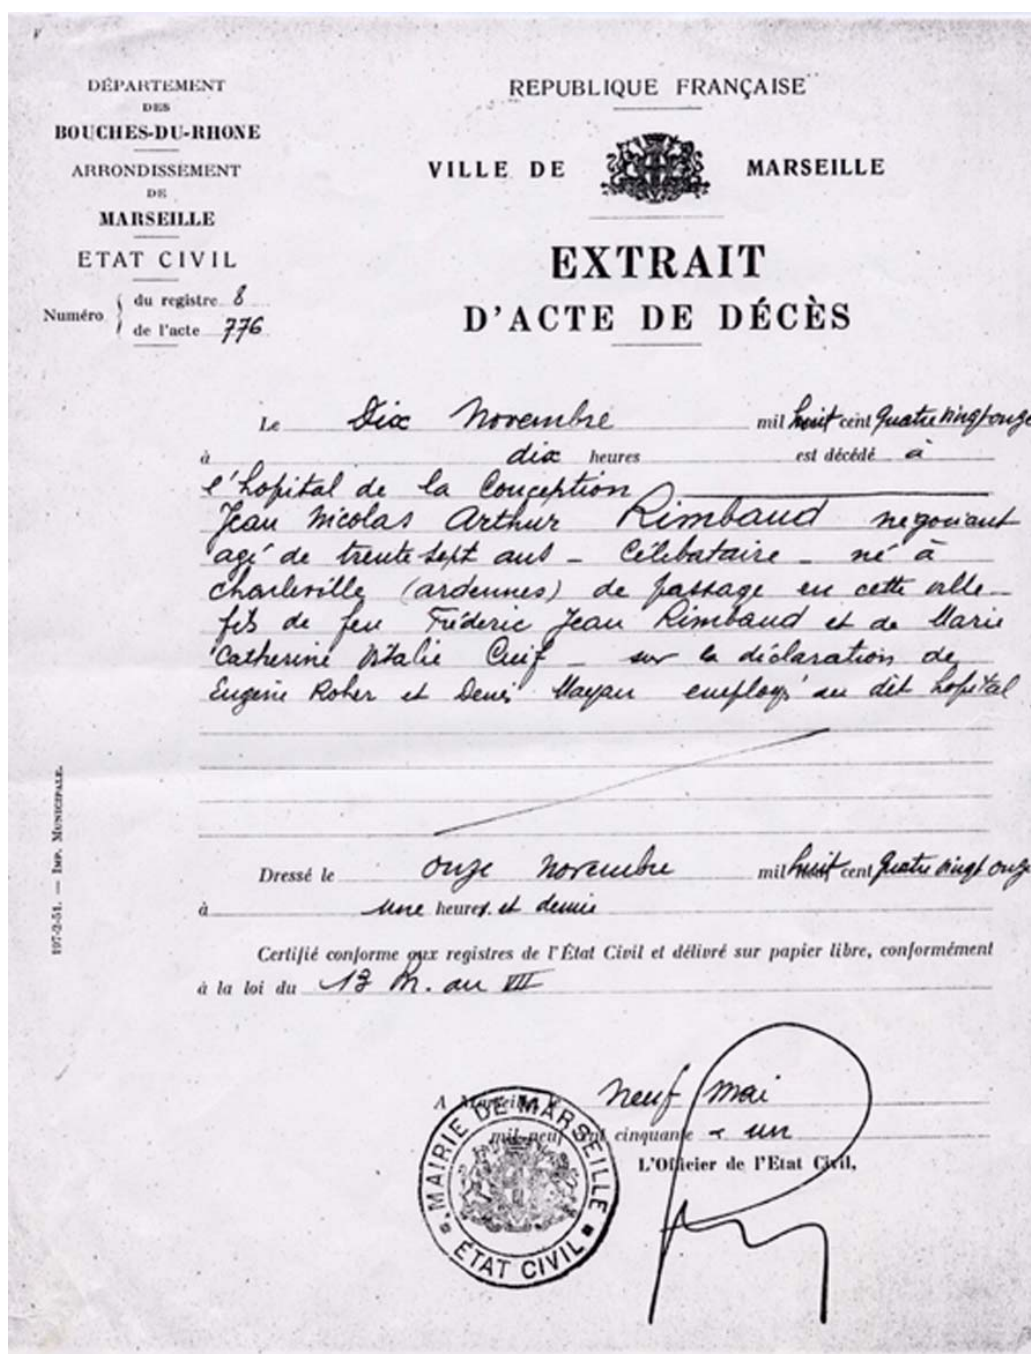 DÉPARTEMENT
DES
BOUCHES-DU-RHONE
ARRONDISSEMENT
DE
MARSEILLE
ETAT CIVIL
Numéro du registre 8
de l'acte 776
REPUBLIQUE FRANÇAISE
VILLE DE MARSEILLE
EXTRAIT
D'ACTE DE DÉCÈS
Le Dix Novembre mil huit cent quatre vingt onze
à dix heures est décédé à
l'hopital de la Conception
Jean Nicolas Arthur Rimbaud négociant
agé de trente sept ans - Célibataire - né à
charleville (ardennes) de passage en cette ville -
fils de feu Fréderic Jean Rimbaud et de Marie
Catherine Vitalie Cuif - sur la déclaration de
Eugène Roher et Denis Mayan employés au dit hopital
Dressé le onze novembre mil huit cent quatre vingt onze
à une heures et demie
Certifié conforme aux registres de l'État Civil et délivré sur papier libre, conformément
à la loi du 13 h. an VII
A Marseille, neuf mai
mil neuf cent cinquante & un
L'Officier de l'Etat Civil,
MAIRIE DE MARSEILLE
ÉTAT CIVIL
197-2-51. — IMP. MUNICIPALE.